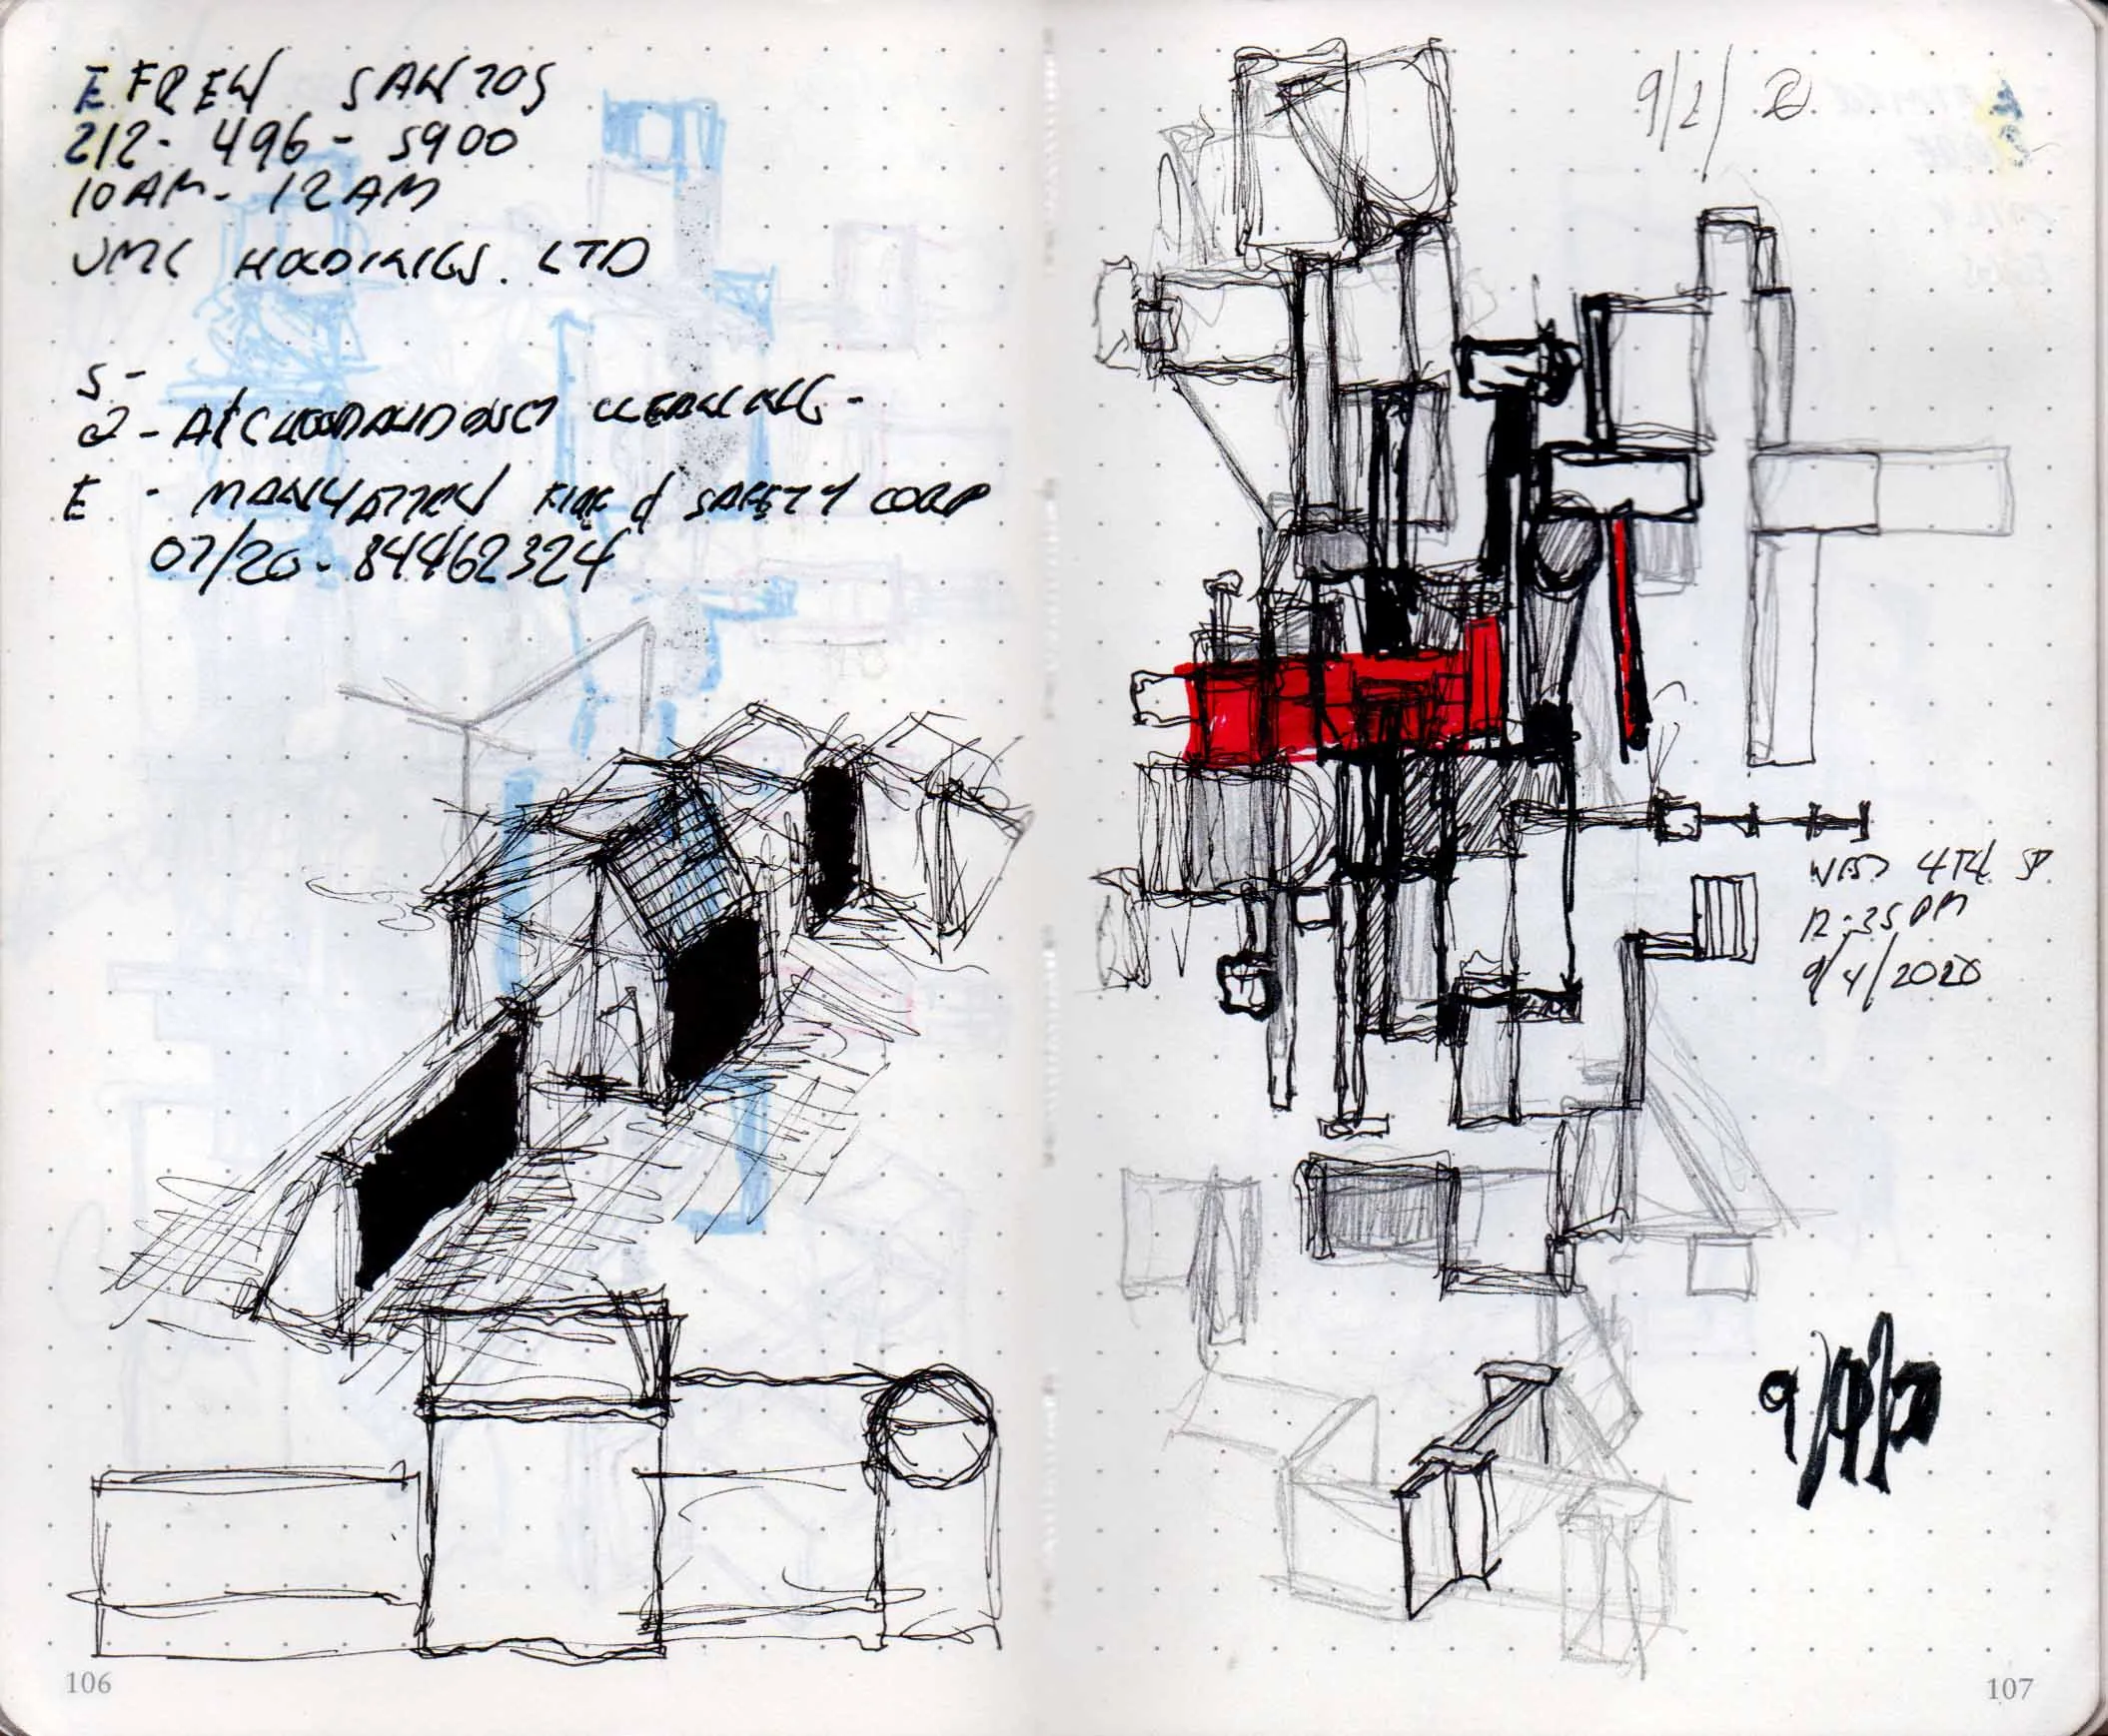 EFREN SANTOS
212-496-5900
10AM-12AM
JMC HOLDINGS. LTD
S-
2-
E - MANHATTAN FIRE & SAFETY CORP
07/20-84462324
106
9/2/
WEST 4TH ST
12:35PM
9/4/2020
107